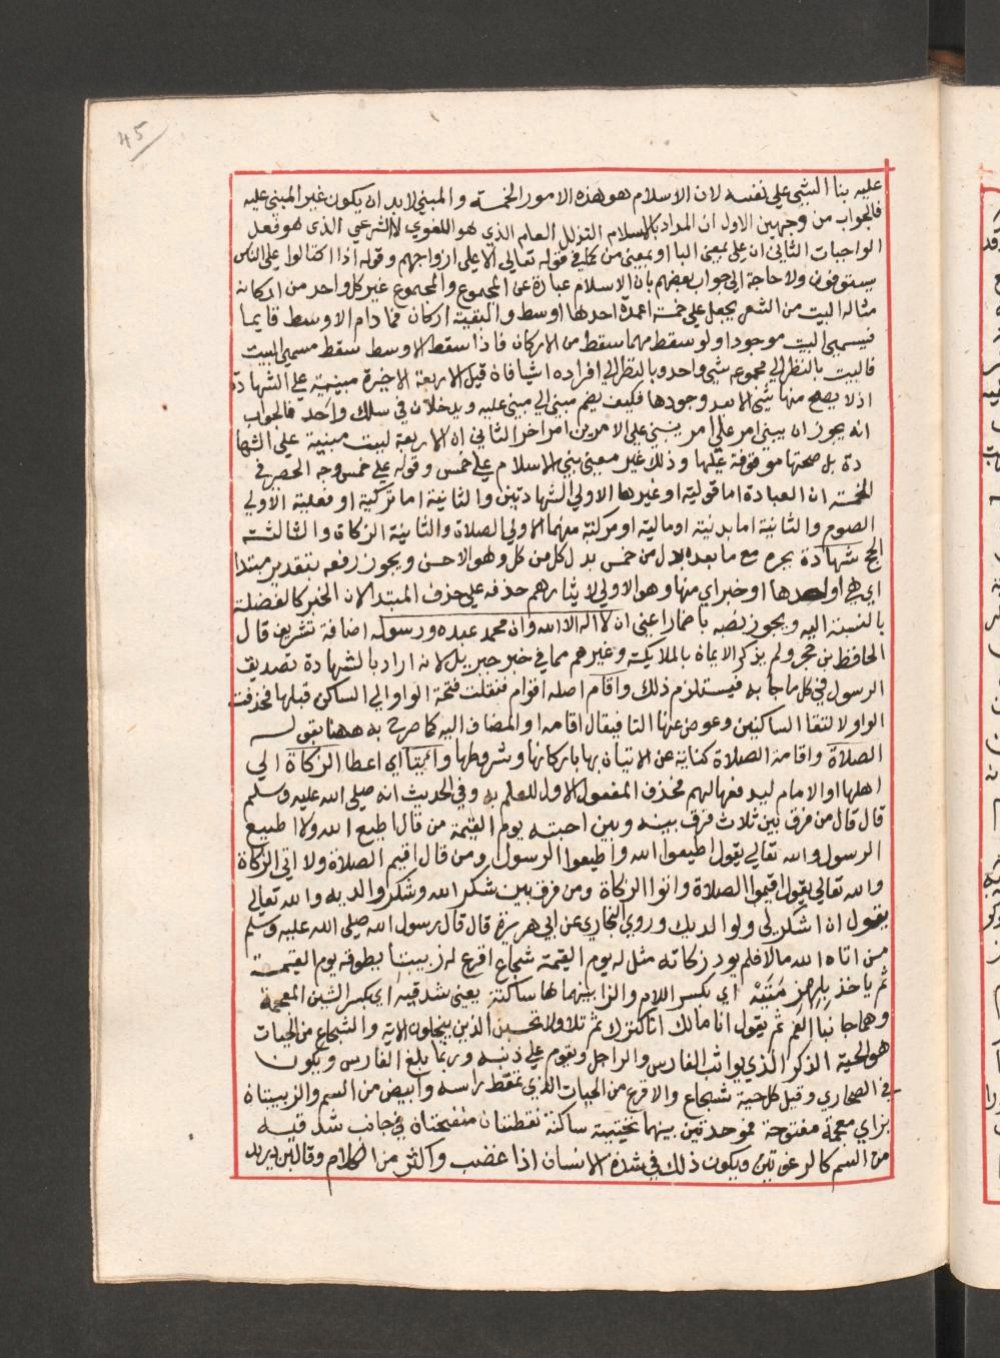 45
عليه بنا الشي على نفسه لان الاسلام هو هذه الامور الخمسة والمبني لابد ان يكون غير المبني عليه
فالجواب من وجهين الاول ان المراد بالاسلام التذلل العام الذي هو اللغوي لا الشرعي الذي هو فعل
الواجبات الثاني ان على بمعنى البا او بمعنى من كما في قوله تعالى الا على ازواجهم وقوله اذا اكتالوا على الناس
يستوفون ولا حاجة الى جواب بعضهم بان الاسلام عبارة عن المجموع والمجموع غير كل واحد من اركانه
مثاله البيت من الشعر يجعل على خمسة اعمدة احدها اوسط والبقية اركان فما دام الاوسط قايما
فيسمى البيت موجودا ولو سقط مهما سقط من الاركان فاذا سقط الاوسط سقط مسمى البيت
فالبيت بالنظر الى مجموعه شي واحد وبالنظر الى افراده اشيا فان قيل الاربعة الاخيرة مبنية على الشهادة
اذ لا يصح منها شي الا بعد وجودها فكيف يضم مبني الى مبني عليه ويدخلان في سلك واحد فالجواب
انه يجوز ان يبنى امر على امر ينبني على الامرين امر اخر الثاني ان الاربعة ليست مبنية على الشها
دة بل صحتها موقوفة عليها وذلك غير معنى بني الاسلام على خمس وقوله على خمس وجه الحصر في
الخمسة ان العبادة اما قولية او غيرها الاولى الشهادتين والثانية اما تركية او فعلية الاولى
الصوم والثانية اما بدنية او مالية او مركبة منهما الاولى الصلاة والثانية الزكاة والثالثة
الحج شهادة بجره مع ما بعده بدل من خمس بدل كل من كل وهو الاحسن ويجوز رفعه بتقدير مبتدا
اي هي او احدها او خبر اي منها وهو الاولى لايثارهم حذفه على حذف المبتدا لان الخبر كالفضلة
بالنسبة اليه ويجوز نصبه باضمار اعني ان لا اله الا الله وان محمد عبده ورسوله اضافة تشريف قال
الحافظ بن حجر ولم يذكر الايمان بالملايكة وغيرهم مما في خبر جبريل لانه اراد بالشهادة تصديق
الرسول في كل ما جا به فيستلزم ذلك واقام اصله اقوام فنقلت فتحة الواو الى الساكن قبلها فحذفت
الواو لالتقا الساكنين وعوض عنها التا فيقال اقامه او المضاف اليه كما صرح به ههنا بقوله
الصلاة واقامة الصلاة كناية عن الاتيان بها باركانها وشروطها وايتا اي اعطا الزكاة الى
اهلها او الامام ليدفعها لهم فحذف المفعول الاول للعلم به وفي الحديث انه صلى الله عليه وسلم
قال قال من فرق بين ثلاث فرق بينه وبين احبته يوم القيمة من قال اطيع الله ولا اطيع
الرسول والله تعالى يقول اطيعوا الله واطيعوا الرسول ومن قال اقيم الصلاة ولا اتي الزكاة
والله تعالى يقول اقيموا الصلاة واتوا الزكاة ومن فرق بين شكر الله وشكر والديه والله تعالى
يقول ان اشكر لي ولوالديك وروي البخاري عن ابي هريرة قال قال رسول الله صلى الله عليه وسلم
من اتاه الله مالا فلم يود زكاته مثل له يوم القيمة شجاع اقرع له زبيبتا يطوقه يوم القيمة
ثم ياخذ بلهزمتيه اي بكسر اللام والزا بينهما ها ساكنة يعني شدقيه اي بكسر الشين المعجمة
وهما جانبا الفم ثم يقول انا مالك انا كنزك ثم تلا ولا تحسبن الذين يبخلون الاية والشجاع من الحيات
هو الحية الذكر الذي يواثب الفارس والراجل ويقوم على ذنبه وربما بلغ الفارس ويكون
في الصحاري وقيل كل حية شجاع والاقرع من الحيات الذي تمعط راسه وابيض من السم والزبيبتان
بزاي معجمة مفتوحة فموحدتين بينهما تحتية ساكنة نقطتان منتفختان في جانب شدقيه
من السم كالرغوتين ويكون ذلك في شدق الانسان اذا غضب واكثر من الكلام وقال بن دريد